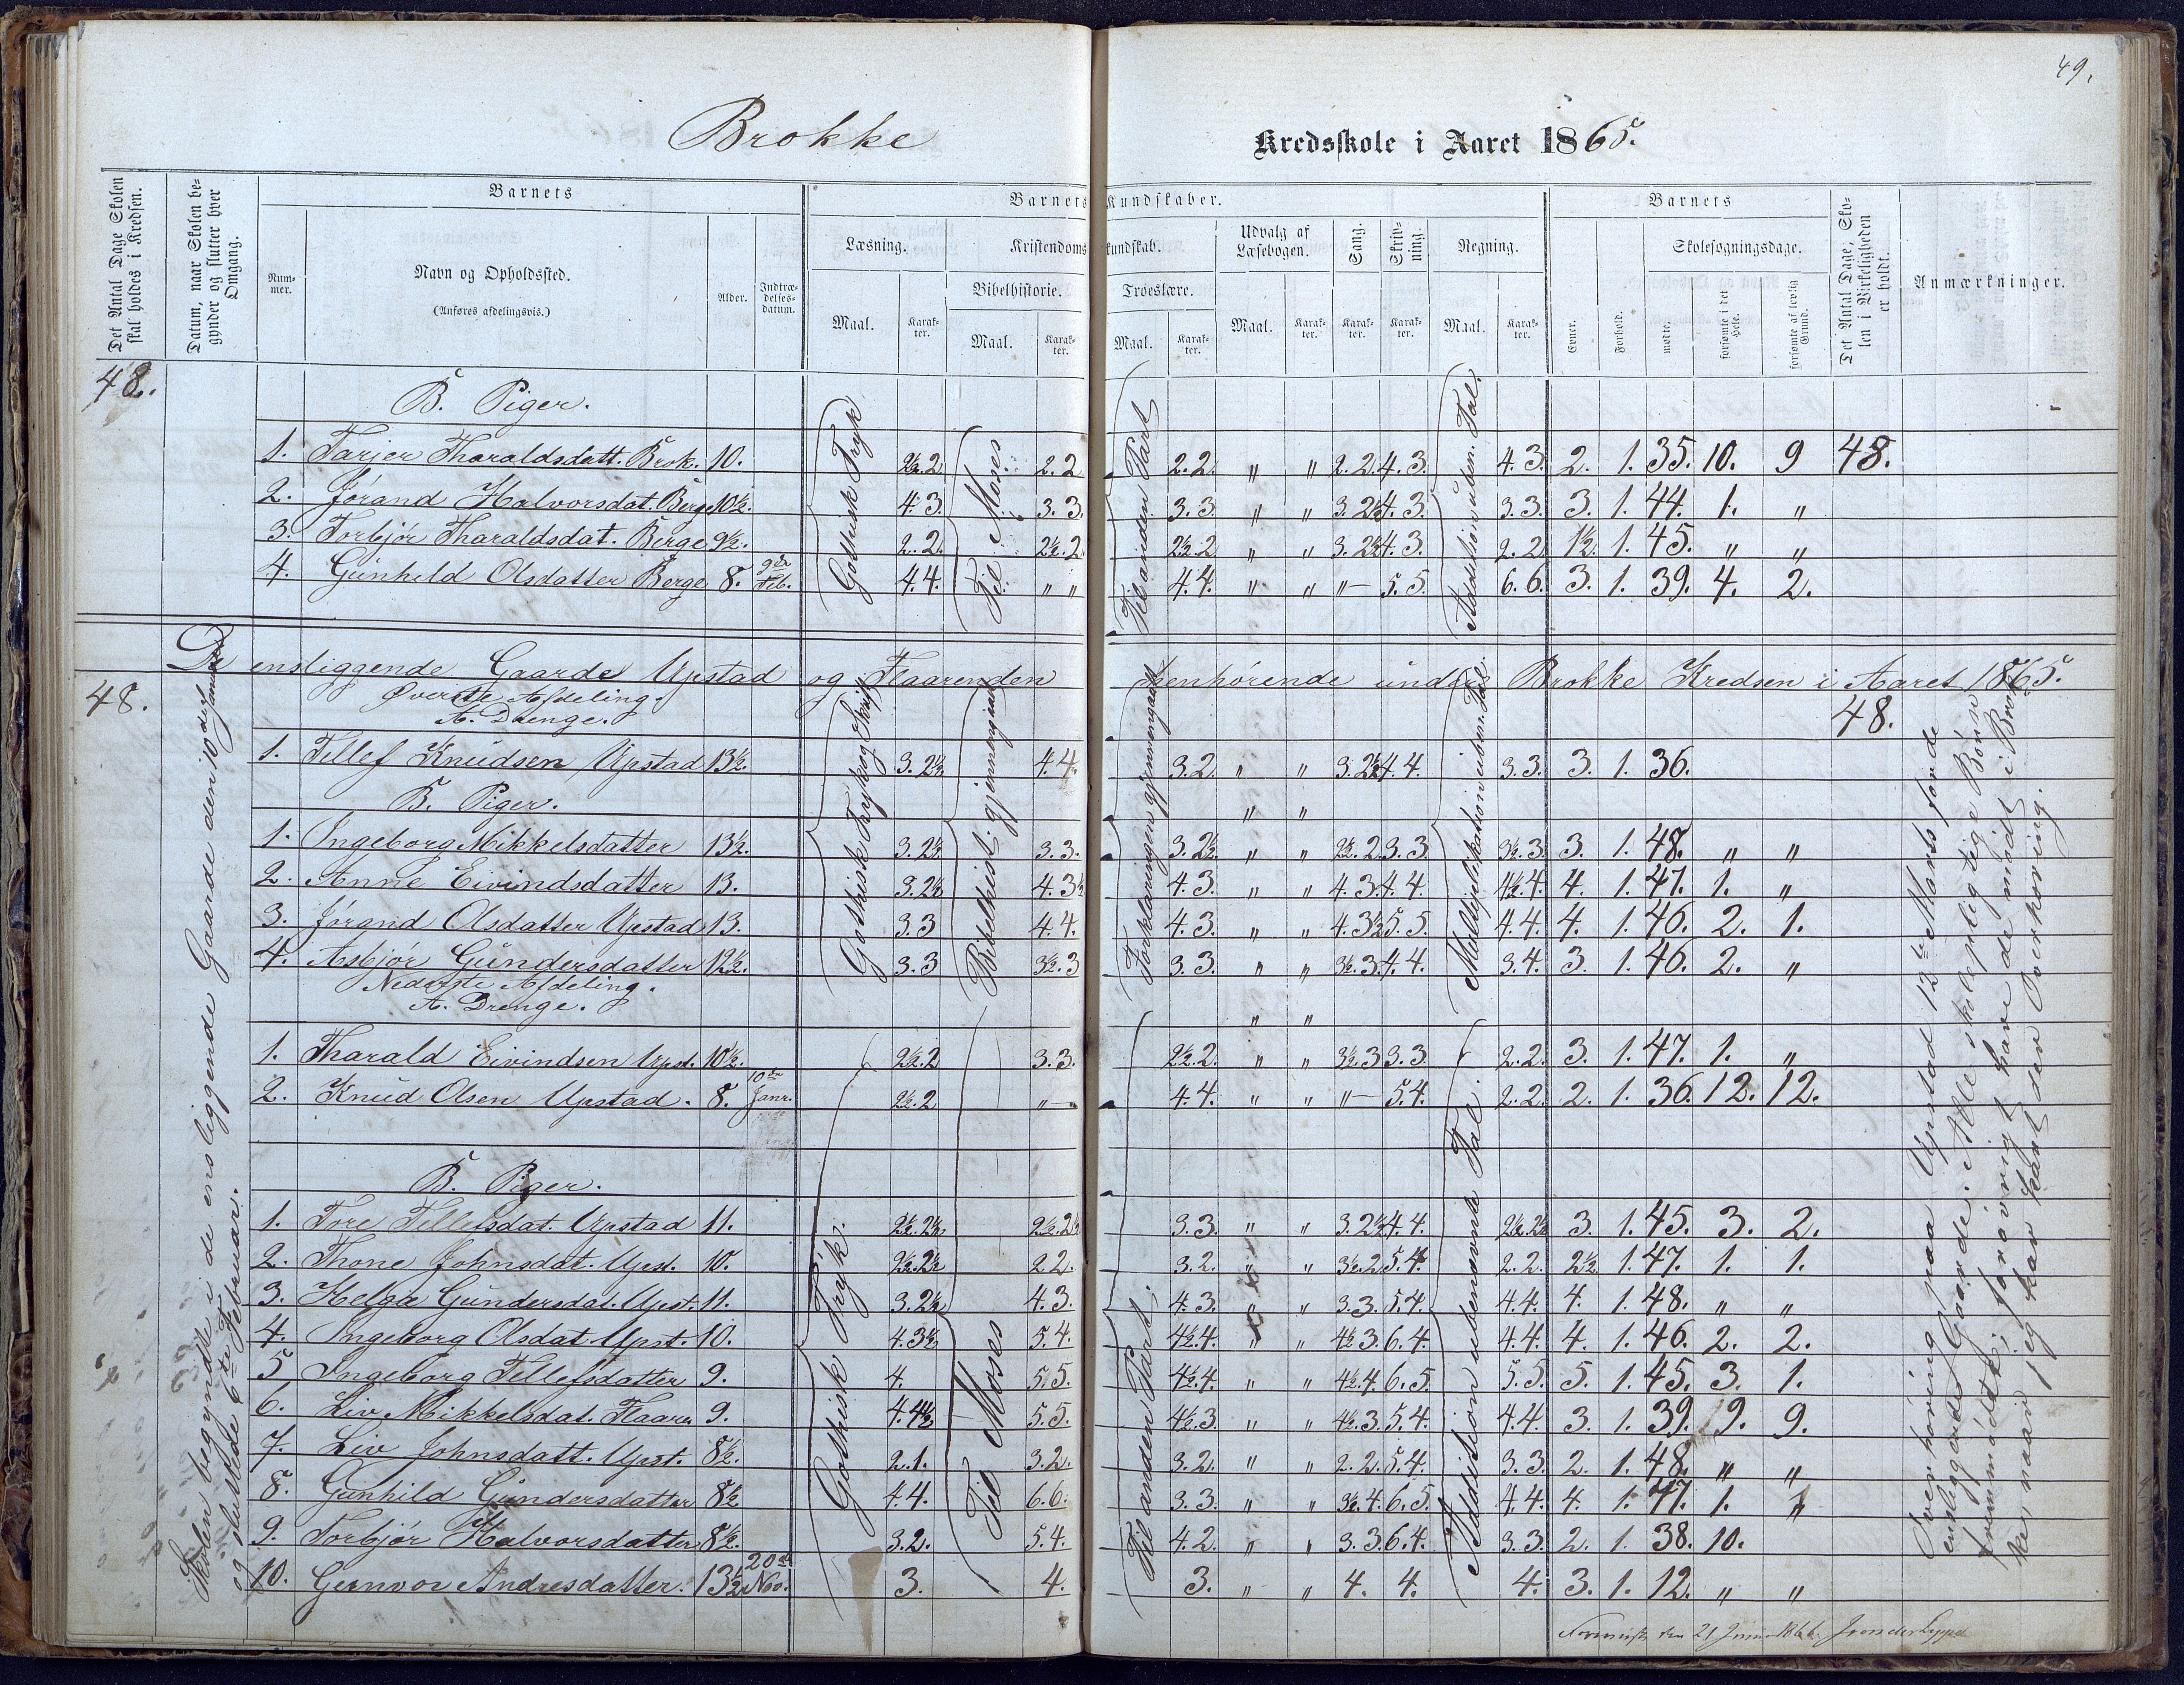 49.
Brokke Kredsskole i Aaret 1865.
Det Antal Dage Skolen skal holdes i Kredsen.
Datum, naar Skolen begynder og slutter hver Omgang.
Barnets
Nummer.
Navn og Opholdssted.
(Anføres afdelingsvis.)
Alder.
Indtrædelsesdatum.
Barnets Kundskaber.
Læsning.
Maal.
Karakter.
Kristendomskundskab.
Bibelhistorie.
Maal.
Karakter.
Troeslære.
Maal.
Karakter.
Udvalg af Læsebogen.
Maal.
Karakter.
Sang.
Karakter.
Skrivning.
Karakter.
Regning.
Maal.
Karakter.
Barnets
Evner.
Forhold.
Skolesøgningsdage.
mødte.
forsømte i det Hele.
forsømte af lovlig Grund.
Det Antal Dage, Skolen i Virkeligheden er holdt.
Anmærkninger.
48.
B. Piger.
Gothisk Tryk
Til Moses
Til anden Part
Addition uben. Tal.
1. Tarjer Tharaldsdatt. Brok. 10. 2½.2 2.2 2.2 " " 2.2. 4.3. 4.3. 2. 1. 35. 10. 9 48.
2. Jórand Halvorsdat. Berge 10½. 4.3 3.3. 3.3. " " 3.2½ 4.3. 3.3. 3. 1. 44. 1. "
3. Torbjór Tharaldsdat. Berge 9½. 2.2. 2½.2 2½.2 " " 3.2½ 4.3. 2.2 1½. 1. 45. " "
4. Gunhild Olsdatter Berge 8. 9de Feb. 4.4. " " 4.4. " " "— 5.5. 6.6. 3. 1. 39. 4. 2.
De ensliggende Gaarde Upstad og Flaarenden henhørende under Brokke Kredsen i Aaret 1865.
48.
48.
Øverste Afdeling.
A. Drenge.
Gothisk Tryk og Skrift
Bibelhist. gjennemgaaet
Forklaringen gjennemgaaet
Multiplikation i uben. Tal.
1. Tellef Knudsen Upstad 13½. 3.2½ 4.4. 3.2. " " 3.2½ 4.4. 3.3. 3. 1. 36.
B. Piger.
" "
1. Ingeborg Mikkelsdatter 13½. 3.2½ 3.3. 3.2½. " " 2½.2. 3.3. 3½.3. 3. 1. 48. " "
2. Anne Eivindsdatter 13. 3.2½ 4.3½ 4.3. " " 4.3. 4.4. 4½.4. 4. 1. 47. 1. "
3. Jórand Olsdatter Upstad 13. 3.3 4.4. 4.3. " " 4.3½ 5.5. 4.4. 4. 1. 46. 2. 1.
4. Asbjór Gundersdatter 12½. 3.3 3½.3 3.3. " " 3½.3. 4.4. 3.4. 3. 1. 46. 2. "
Nederste Afdeling.
A. Drenge.
" "
1. Tharald Eivindsen Upst. 10½. 2½.2 3.3. 2½.2. " " 3½.3 3.3. 2.2. 3. 1. 47. 1. "
2. Knud Olsen Upstad. 8. 10de Janr. 2½.2 "— 4.4. " " "— 5.4. 2.2. 2. 1. 36. 12. 12.
B. Piger.
Gothisk Tryk.
Til Moses
Til anden Part.
Addition ubenævnte Tal.
1. Tore Tellefsdat. Upstad 11. 2½.2½ 2½.2½ 3.3. " " 3.2½ 4.4. 2½.2½ 3. 1. 45. 3. 2.
2. Thone Johnsdat. Upst. 10. 2½.2½ 2.2. 3.2. " " 3½.2 5.4. 2.2. 2½. 1. 47. 1. 1.
3. Helga Gundersdat. Upst. 11. 3.2½ 4.3. 4.3. " " 3.3. 5.4. 4.4. 4. 1. 48. " "
4. Ingeborg Olsdat. Upst. 10. 4.3½ 5.4. 4½.4. " " 4½.3. 6.4. 4.4. 4. 1. 46. 2. 2.
5 Ingeborg Tellefsdatter 9. 4. 5.5. 4½.4. " " 4½.4. 6.5. 5.5. 5. 1. 45. 3. 1.
6. Liv Mikkelsdat. Flaare 9. 4.4½ 5.5. 4½.3. " " 4½.3. 5.4. 4.4. 3. 1. 39. 9. 9.
7. Liv Johnsdatt. Upst. 8½. 2.1. 3.2. 3.2. " " 2.2. 5.4. 3.3. 2. 1. 48. " "
8. Gunhild Gundersdatter 8½ 4.4. 6.6. 3.3. " " 3½.4. 6.5. 4.4. 4. 1. 47. 1. "
9. Torbjór Halvorsdatter 8½. 3.2. 5.4. 4.2. " " 3.3. 6.4. 3.3. 2. 1. 38. 10.
10. Gunvor Andresdatter. 13½ 20de Nov. 3. 4. 3. " " 4. 4. 4. 3. 1. 12. " "
Skolen begyndte i de ensliggende Gaarde den 10de Januar
og sluttede 6te Februar.
Overhøring paa Upstad 12te Marts for de
ensliggende Gaarde. Alle skolepligtige Børn
fremmødte; forøvrigt have de mødt i Brokke,
naar jeg har havt den Overhøring.
den 21 Juni 1866.